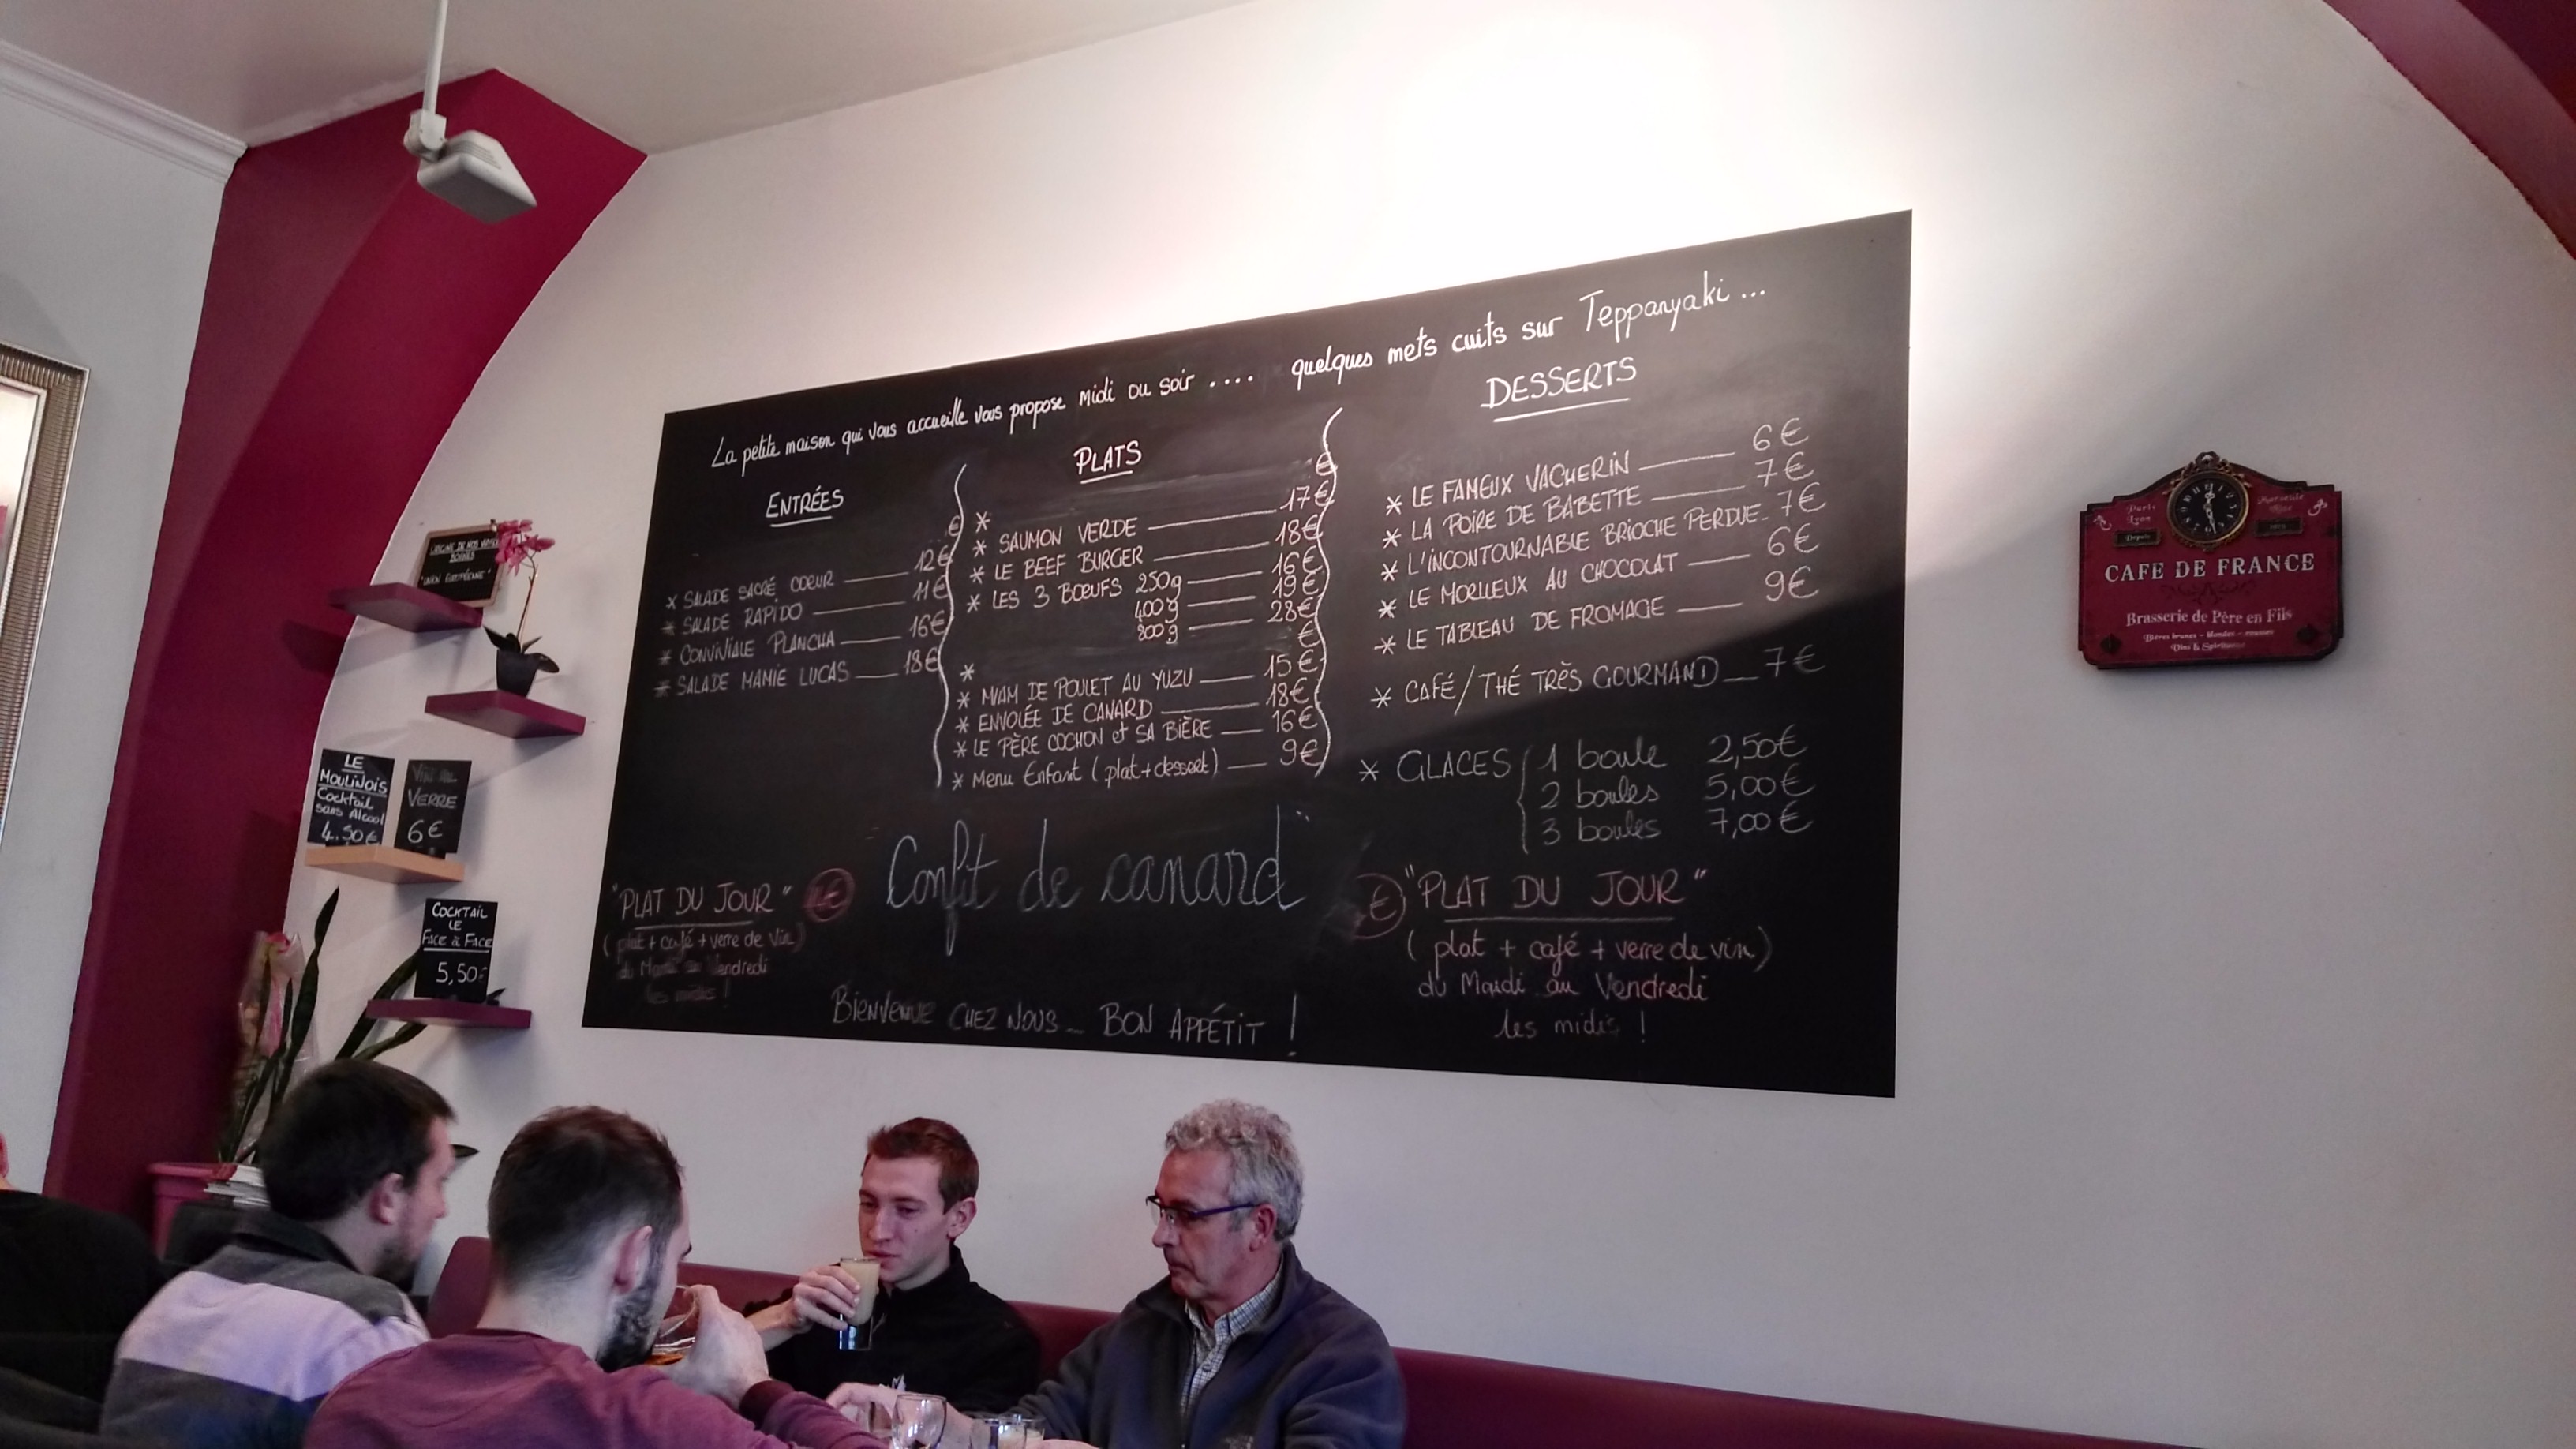 La petite maison qui vous accueille vous propose midi ou soir .... quelques mets cuits sur Teppanyaki ...
ENTRÉES
€
* SALADE SACRÉ COEUR 12€
* SALADE RAPIDO 11€
* CONVIVIALE PLANCHA 16€
* SALADE MAMIE LUCAS 18€
PLATS
* €
* SAUMON VERDE 17€
* LE BEEF BURGER 18€
* LES 3 BOEUFS 250g 16€
400g 19€
800g 28€
* €
* MIAM DE POULET AU YUZU 15€
* ENVOLÉE DE CANARD 18€
* LE PÈRE COCHON et SA BIÈRE 16€
* Menu Enfant (plat+dessert) 9€
DESSERTS
* LE FAMEUX VACHERIN 6€
* LA POIRE DE BABETTE 7€
* L'INCONTOURNABLE BRIOCHE PERDUE 7€
* LE MOELLEUX AU CHOCOLAT 6€
* LE TABLEAU DE FROMAGE 9€
* CAFÉ/THÉ TRÈS GOURMAND 7€
* GLACES 1 boule 2,50€
2 boules 5,00€
3 boules 7,00€
"PLAT DU JOUR"
(plat + café + verre de vin)
du Mardi au Vendredi
les midis !
"Confit de canard"
€
"PLAT DU JOUR"
(plat + café + verre de vin)
du Mardi au Vendredi
les midis !
BIENVENUE CHEZ NOUS BON APPÉTIT !
L'ORIGINE DE NOS VIANDES
BOVINES
"UNION EUROPÉENNE"
LE
MOULINOIS
Cocktail
sans Alcool
4.50€
VIN AU
VERRE
6€
COCKTAIL
LE
FACE à FACE
5,50
Paris
Lyon
Marseille
Nice
Depuis
CAFE DE FRANCE
Brasserie de Père en Fils
Bières brunes - blondes - rousses
Vins & Spiritueux